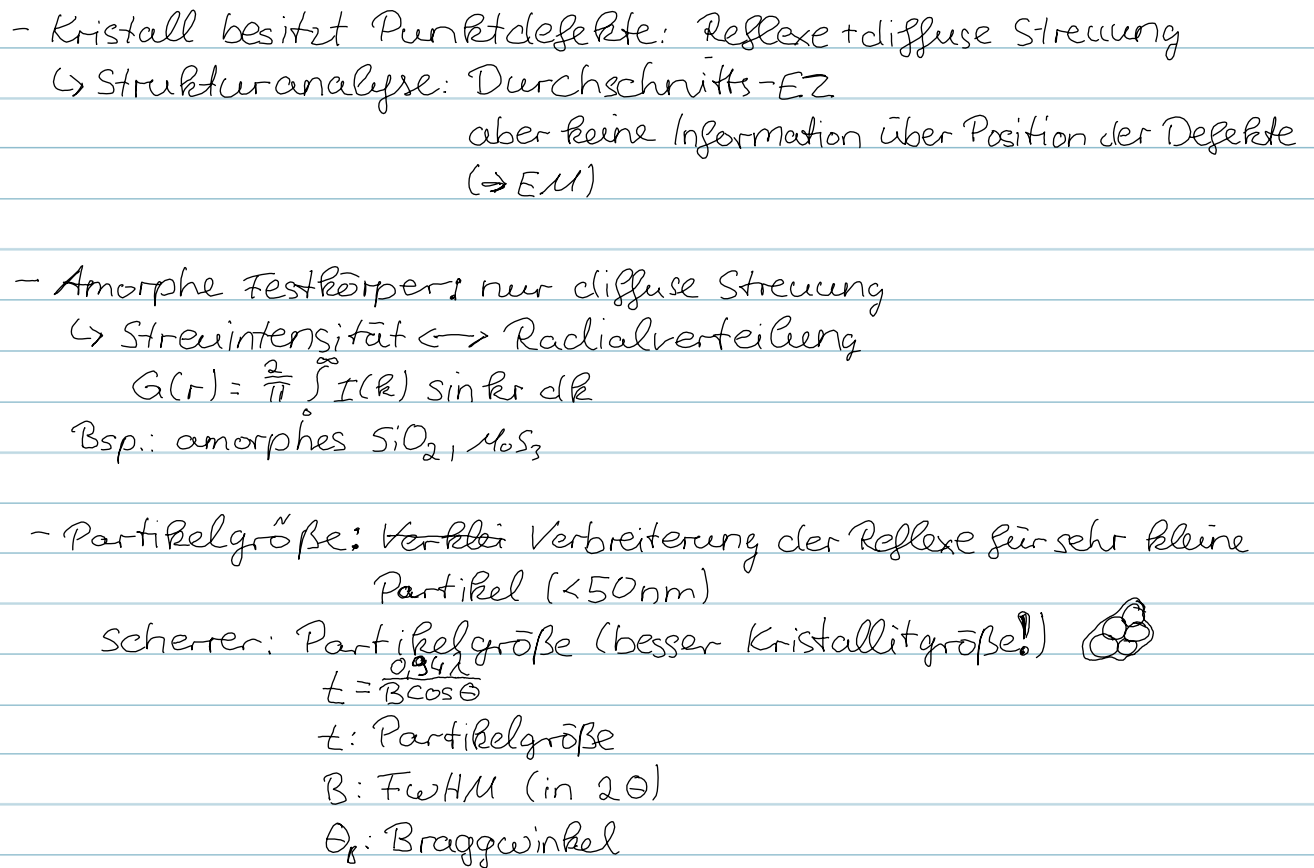 - Kristall besitzt Punktdefekte: Reflexe + diffuse Streuung
↳ Strukturanalyse: Durchschnitts-EZ
aber keine Information über Position der Defekte
(⇒ EM)
- Amorphe Festkörper: nur diffuse Streuung
↳ Streuintensität ⟷ Radialverteilung
G(r) = 2/π ∫₀^∞ I(k) sin kr dk
Bsp.: amorphes SiO₂, MoS₃
- Partikelgröße: ~~Verklei~~ Verbreiterung der Reflexe für sehr kleine
Partikel (<50nm)
Scherrer: Partikelgröße (besser Kristallitgröße!)
t = 0,94λ / B cos θ
t: Partikelgröße
B: FWHM (in 2θ)
θ_B: Braggwinkel